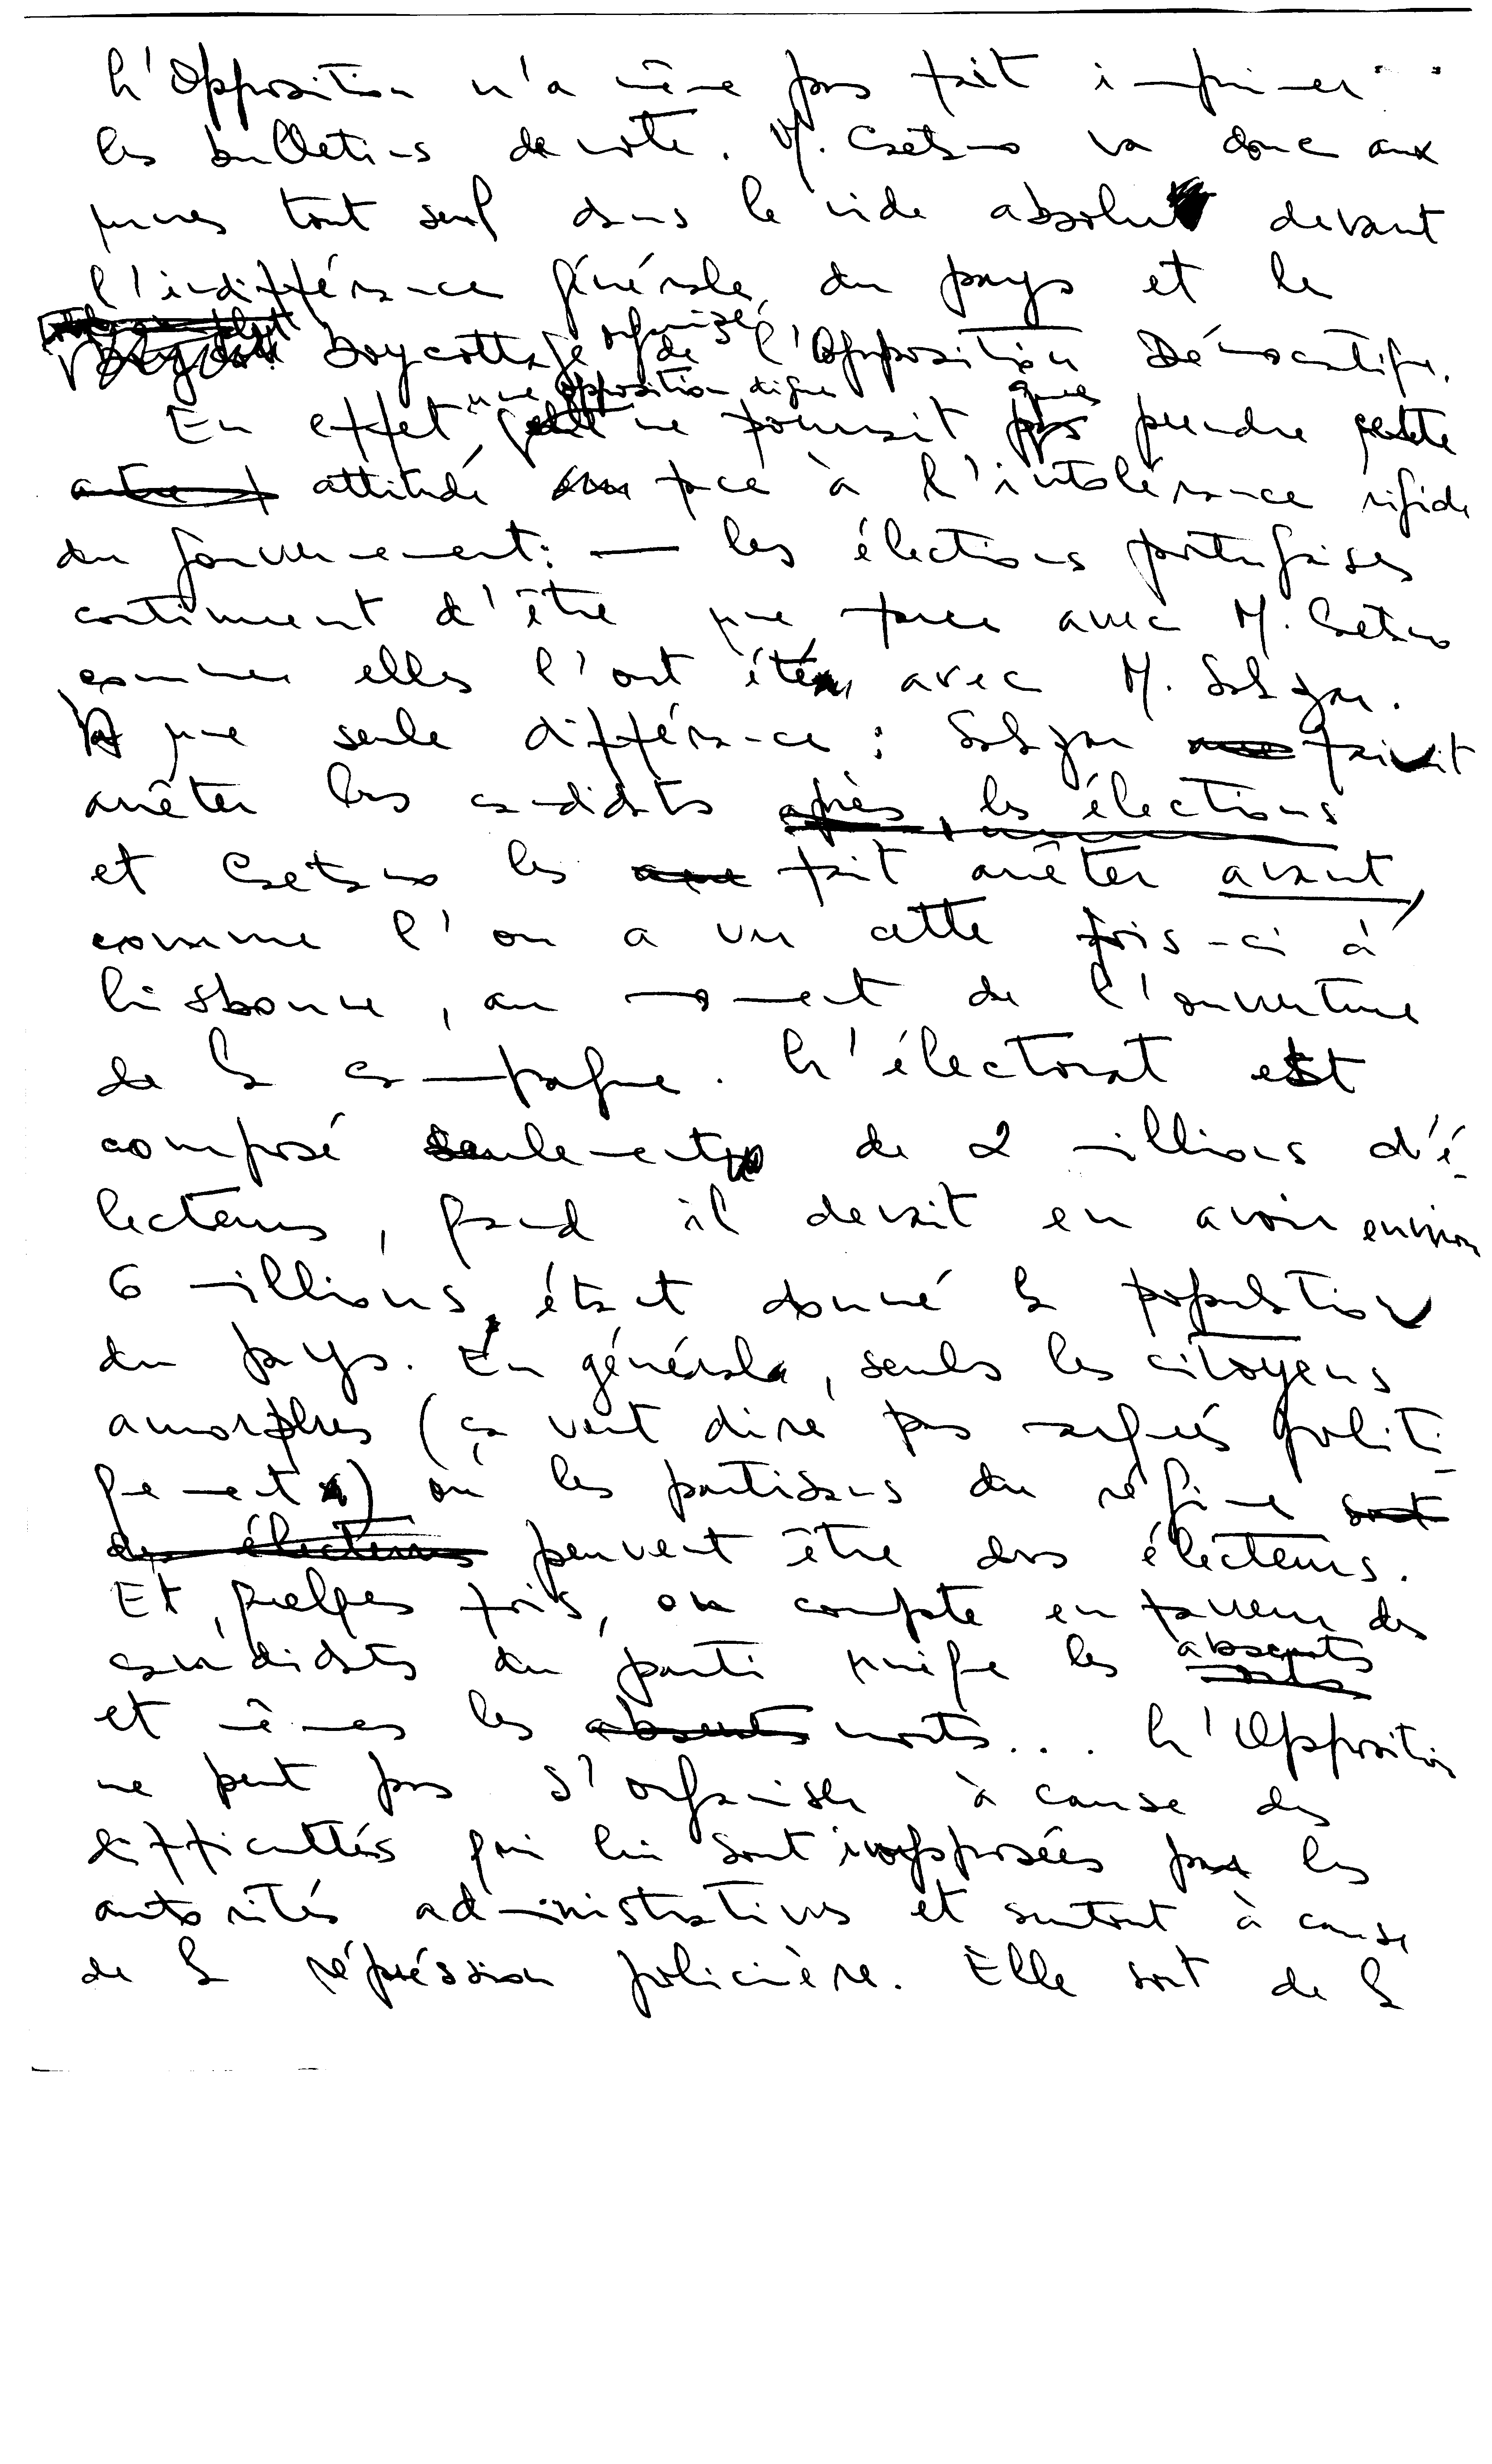 L'Opposition n'a même pas fait imprimer
les bulletins de vote. M. Caetano va donc aux
urnes tout seul dans le vide absolu devant
l'indifférence générale du pays et le
boycottage organisé de l'Opposition Démocratique.
une opposition digne
En effet, ne pourrait que prendre cette
attitude face à l'intolérance rigide
du gouvernement: — les élections portugaises
continuent d'être une farce avec M. Caetano
comme elles l'ont été avec M. Salazar.
une seule différence : Salazar faisait
arrêter les candidats après les élections
et Caetano les fait arrêter avant,
comme l'on a vu cette fois-ci à
Lisbonne, au moment de l'ouverture
de la campagne. L'électorat est
composé seulement de 2 millions d'é-
lecteurs, quand il devait en avoir environ
6 millions, étant donné la population
du pays. En général, seuls les citoyens
amorphes (ça veut dire pas marqués politi-
quement) ou les partisans du régime sont
des électeurs peuvent être des électeurs.
Et, quelques fois, on compte en faveur des
candidats du parti unique les absents
et mêmes les absents morts... L'Opposition
ne peut pas s'organiser à cause des
difficultés qui lui sont imposées par les
autorités administratives et surtout à cause
de la répréssion policière. Elle sort de la